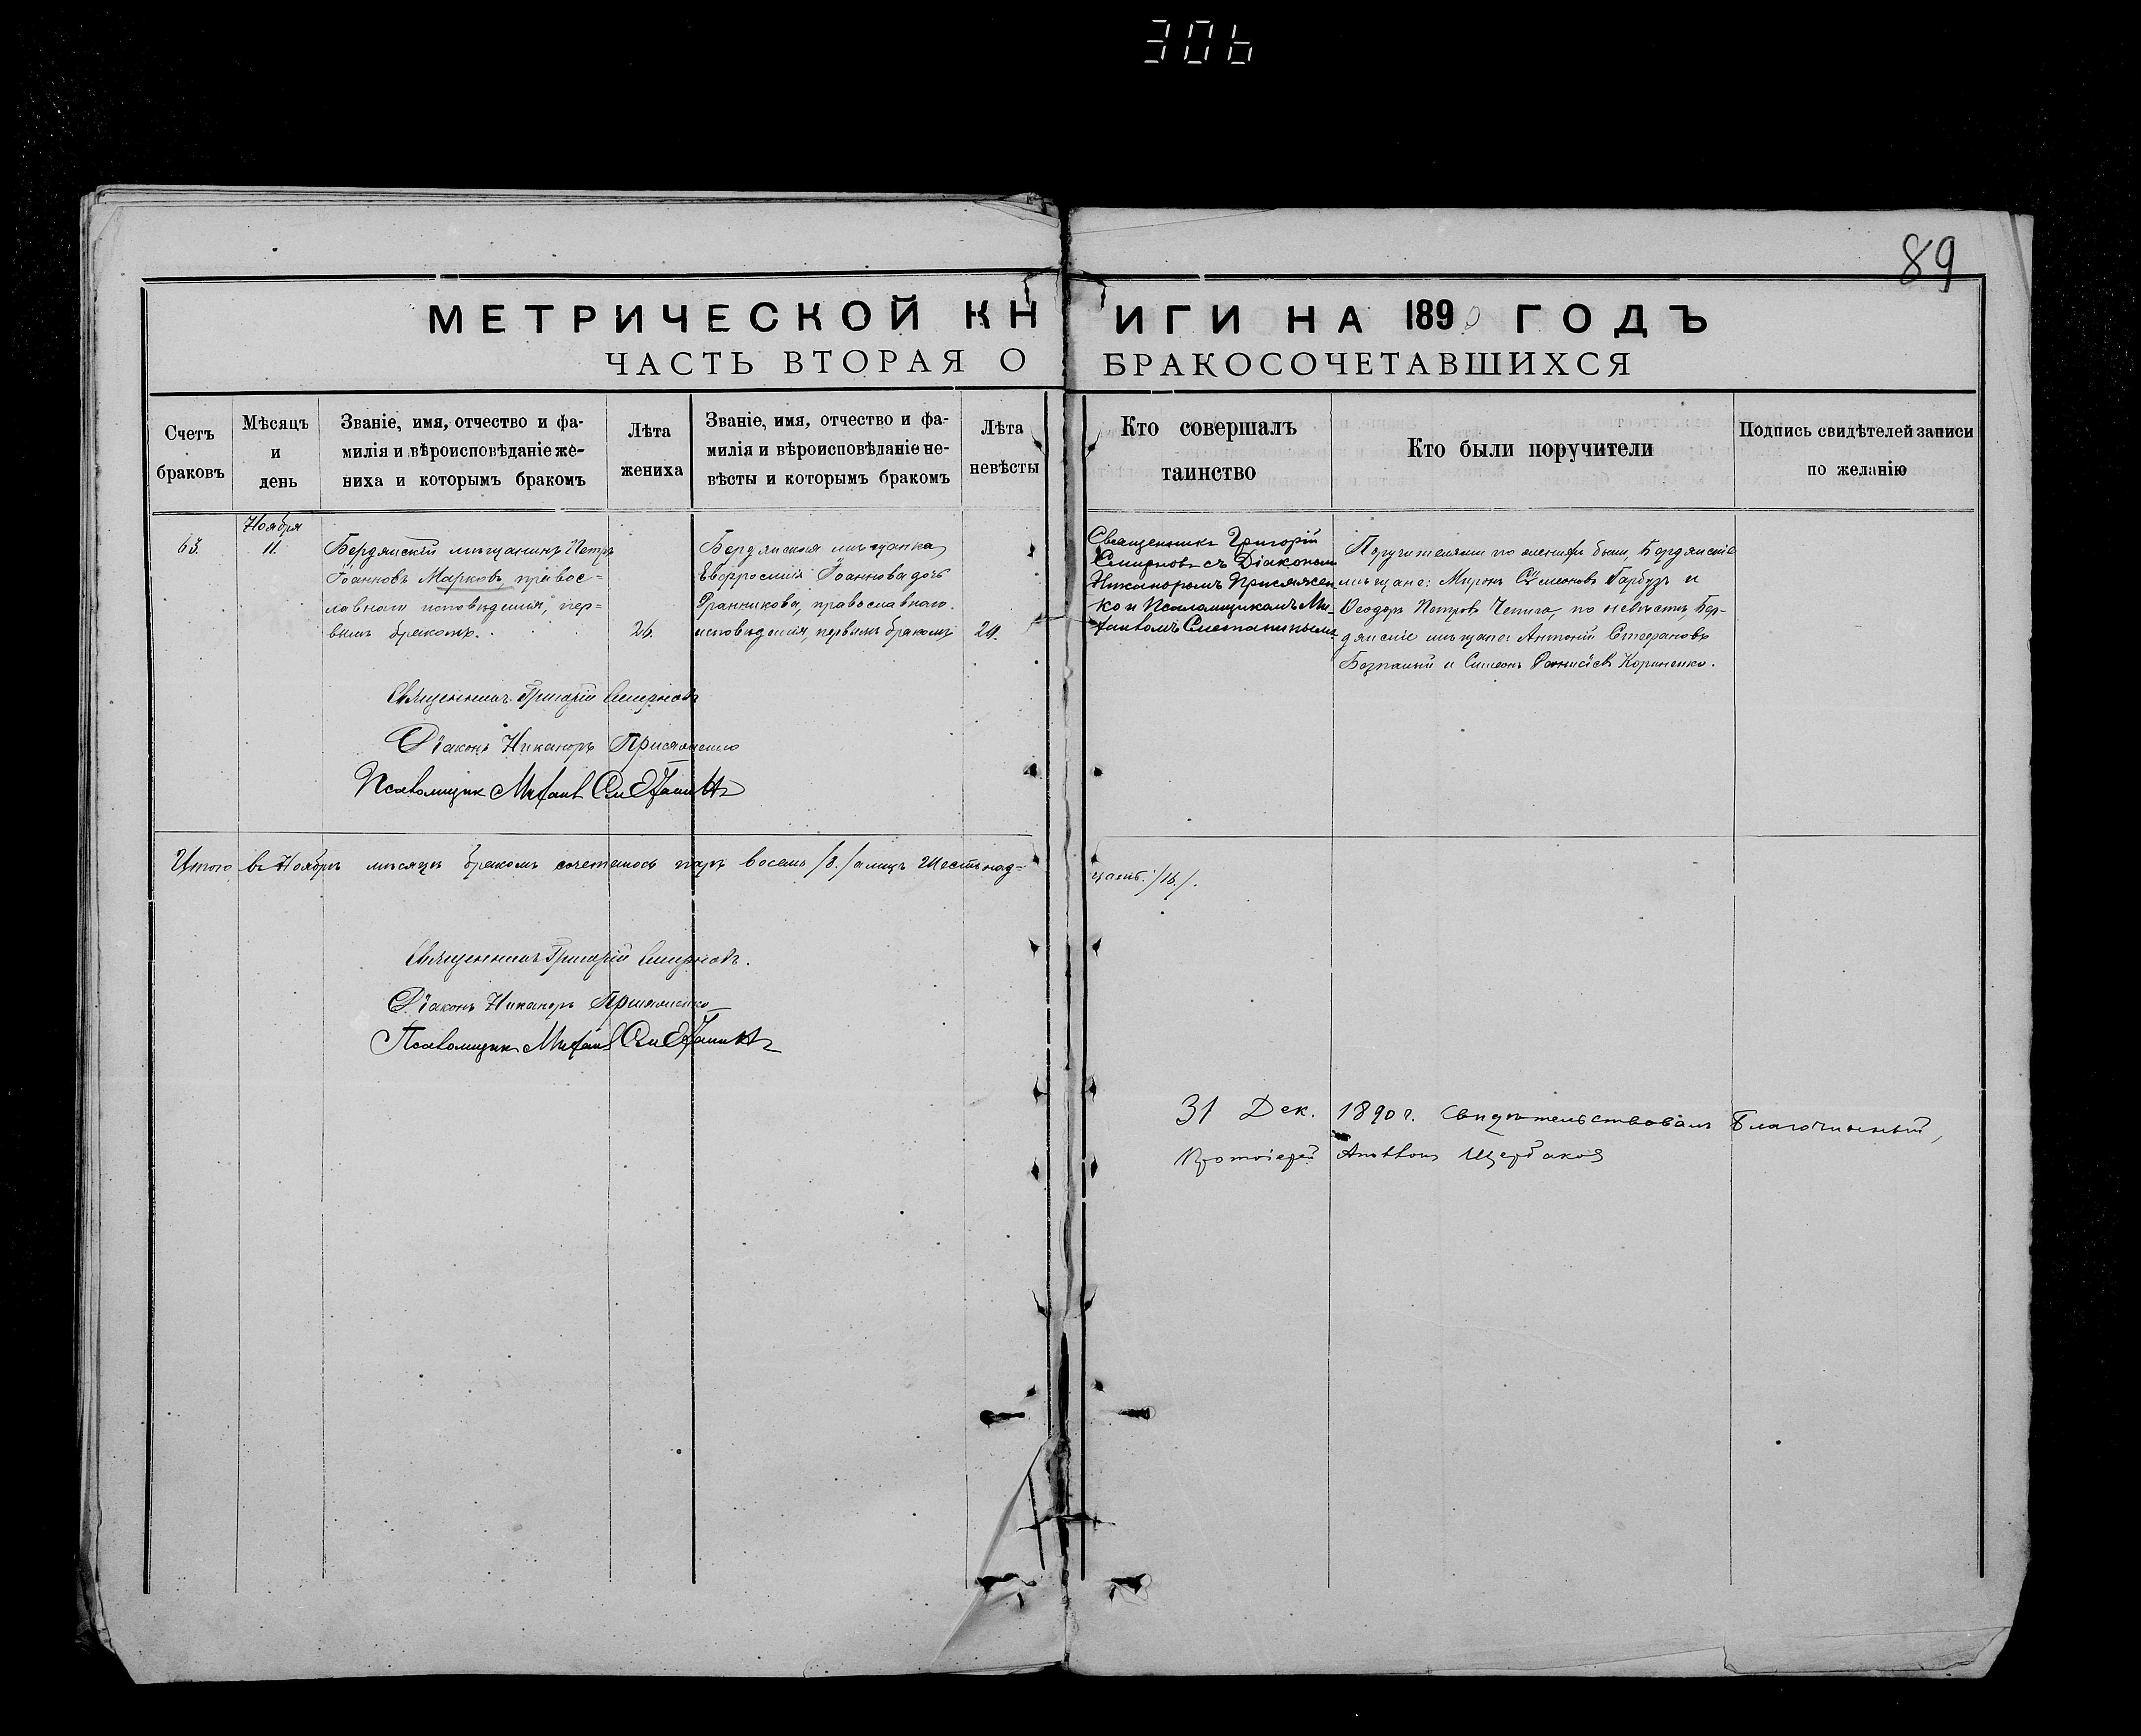 306
89
МЕТРИЧЕСКОЙ КНИГИ НА 1890 ГОДЪ
ЧАСТЬ ВТОРАЯ О БРАКОСОЧЕТАВШИХСЯ
Счетъ браковъ
Мѣсяцъ и день
Званіе, имя, отчество и фа-
милія и вѣроисповѣданіе же-
ниха и которымъ бракомъ
Лѣта жениха
Званіе, имя, отчество и фа-
милія и вѣроисповѣданіе не-
вѣсты и которымъ бракомъ
Лѣта невѣсты
Кто совершалъ
таинство
Кто были поручители
Подпись свидѣтелей записи
по желанію
63.
Ноября
11.
Бердянскій мѣщанинъ Петръ
Іоанновъ Марковъ, правос-
лавнаго исповѣданія, пер-
вымъ бракомъ.
26.
Бердянская мѣщанка
Евфросинія Іоаннова дочь
православнаго
исповѣданія, первымъ бракомъ
Священникъ Григорій
Смирновъ съ Діакономъ
Никаноромъ Присяжен-
ко и Псаломщикомъ Ми-
хаиломъ Сметанинымъ
Поручителями по женихѣ были, Бердянскіе
мѣщане: Миронъ Сѵмеоновъ Гарбузъ и
Ѳеодоръ Петровъ Чепига, по невѣстѣ, Бер-
дянскіе мѣщане Антоній Стефановъ
и Симеонъ
Священникъ Григорій Смирновъ
Діаконъ Никаноръ Присяженко
Псаломщик Михаил Сметанинъ
Итого въ Ноябрѣ мѣсяцѣ бракомъ сочеталось паръ восемь /8./ а лицъ Шестьнад-
цать. /16./.
Священникъ Григорій Смирновъ.
Діаконъ Никаноръ Присяженко
Псаломщикъ Михаил Сметанинъ
31 Дек. 1890 г. Свидѣтельствовалъ Благочинный,
Протоіерей Щербаков